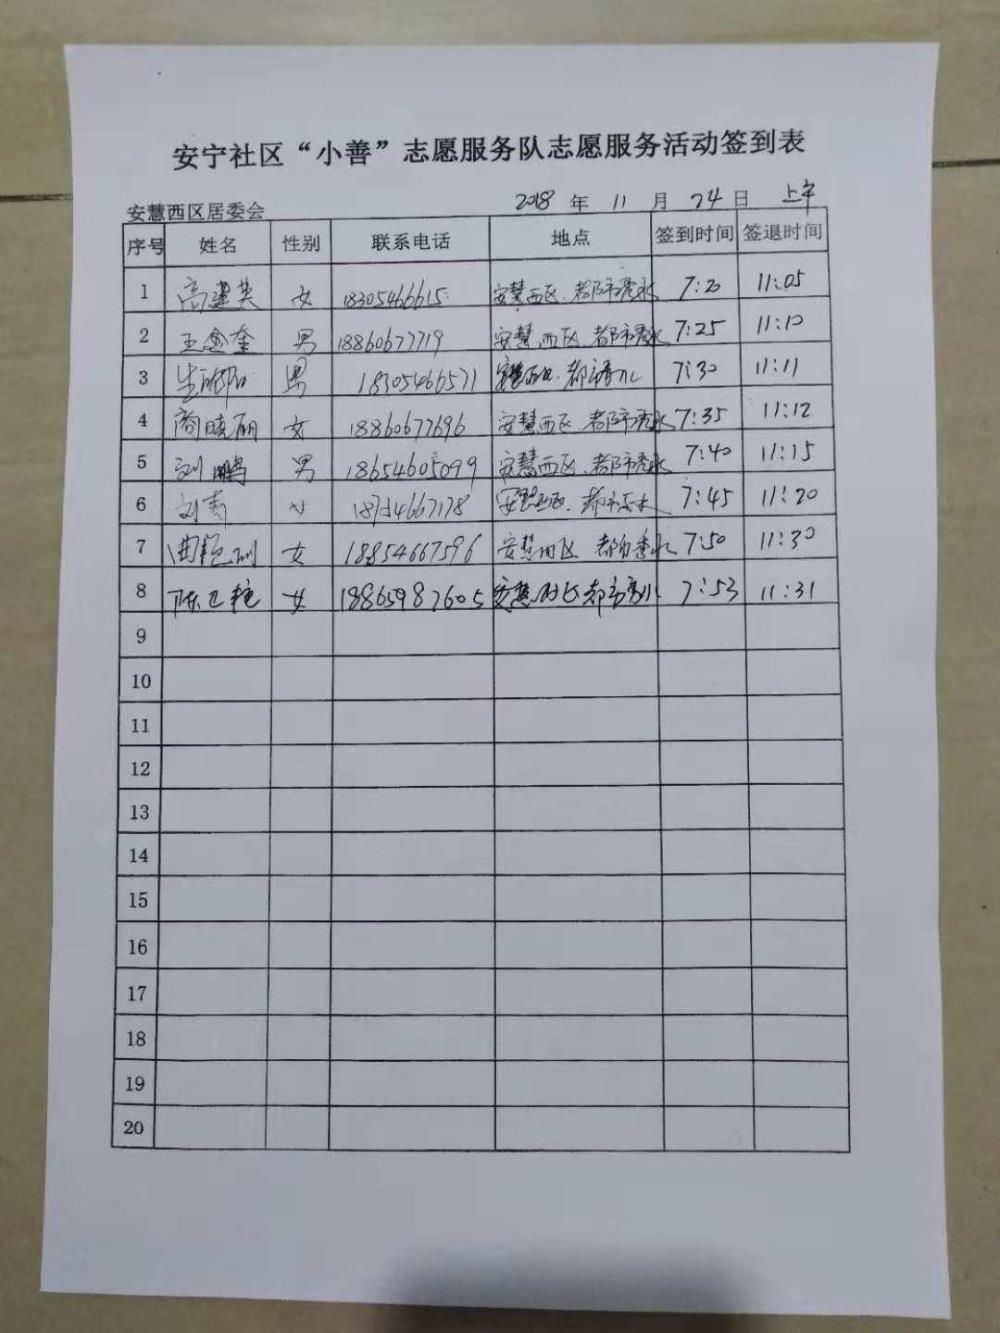 安宁社区“小善”志愿服务队志愿服务活动签到表
安慧西区居委会 2018 年 11 月 24 日 上午
序号 姓名 性别 联系电话 地点 签到时间 签退时间
1 高 英 女 18305466615 安慧西区.都市秀水 7:20 11:05
2 王 奎 男 18860677719 安慧西区.都市秀水 7:25 11:10
3 男 18305466571 安慧西区.都市秀水 7:30 11:11
4 商晓丽 女 18860677696 安慧西区.都市秀水 7:35 11:12
5 刘鹏 男 18654605099 安慧西区.都市秀水 7:40 11:15
6 刘青 女 安慧西区.都市秀水 7:45 11:20
7 曲 女 18854667596 安慧西区 都市秀水 7:50 11:30
8 陈 艳 女 18865987605 安慧西区都市秀水 7:53 11:31
9
10
11
12
13
14
15
16
17
18
19
20